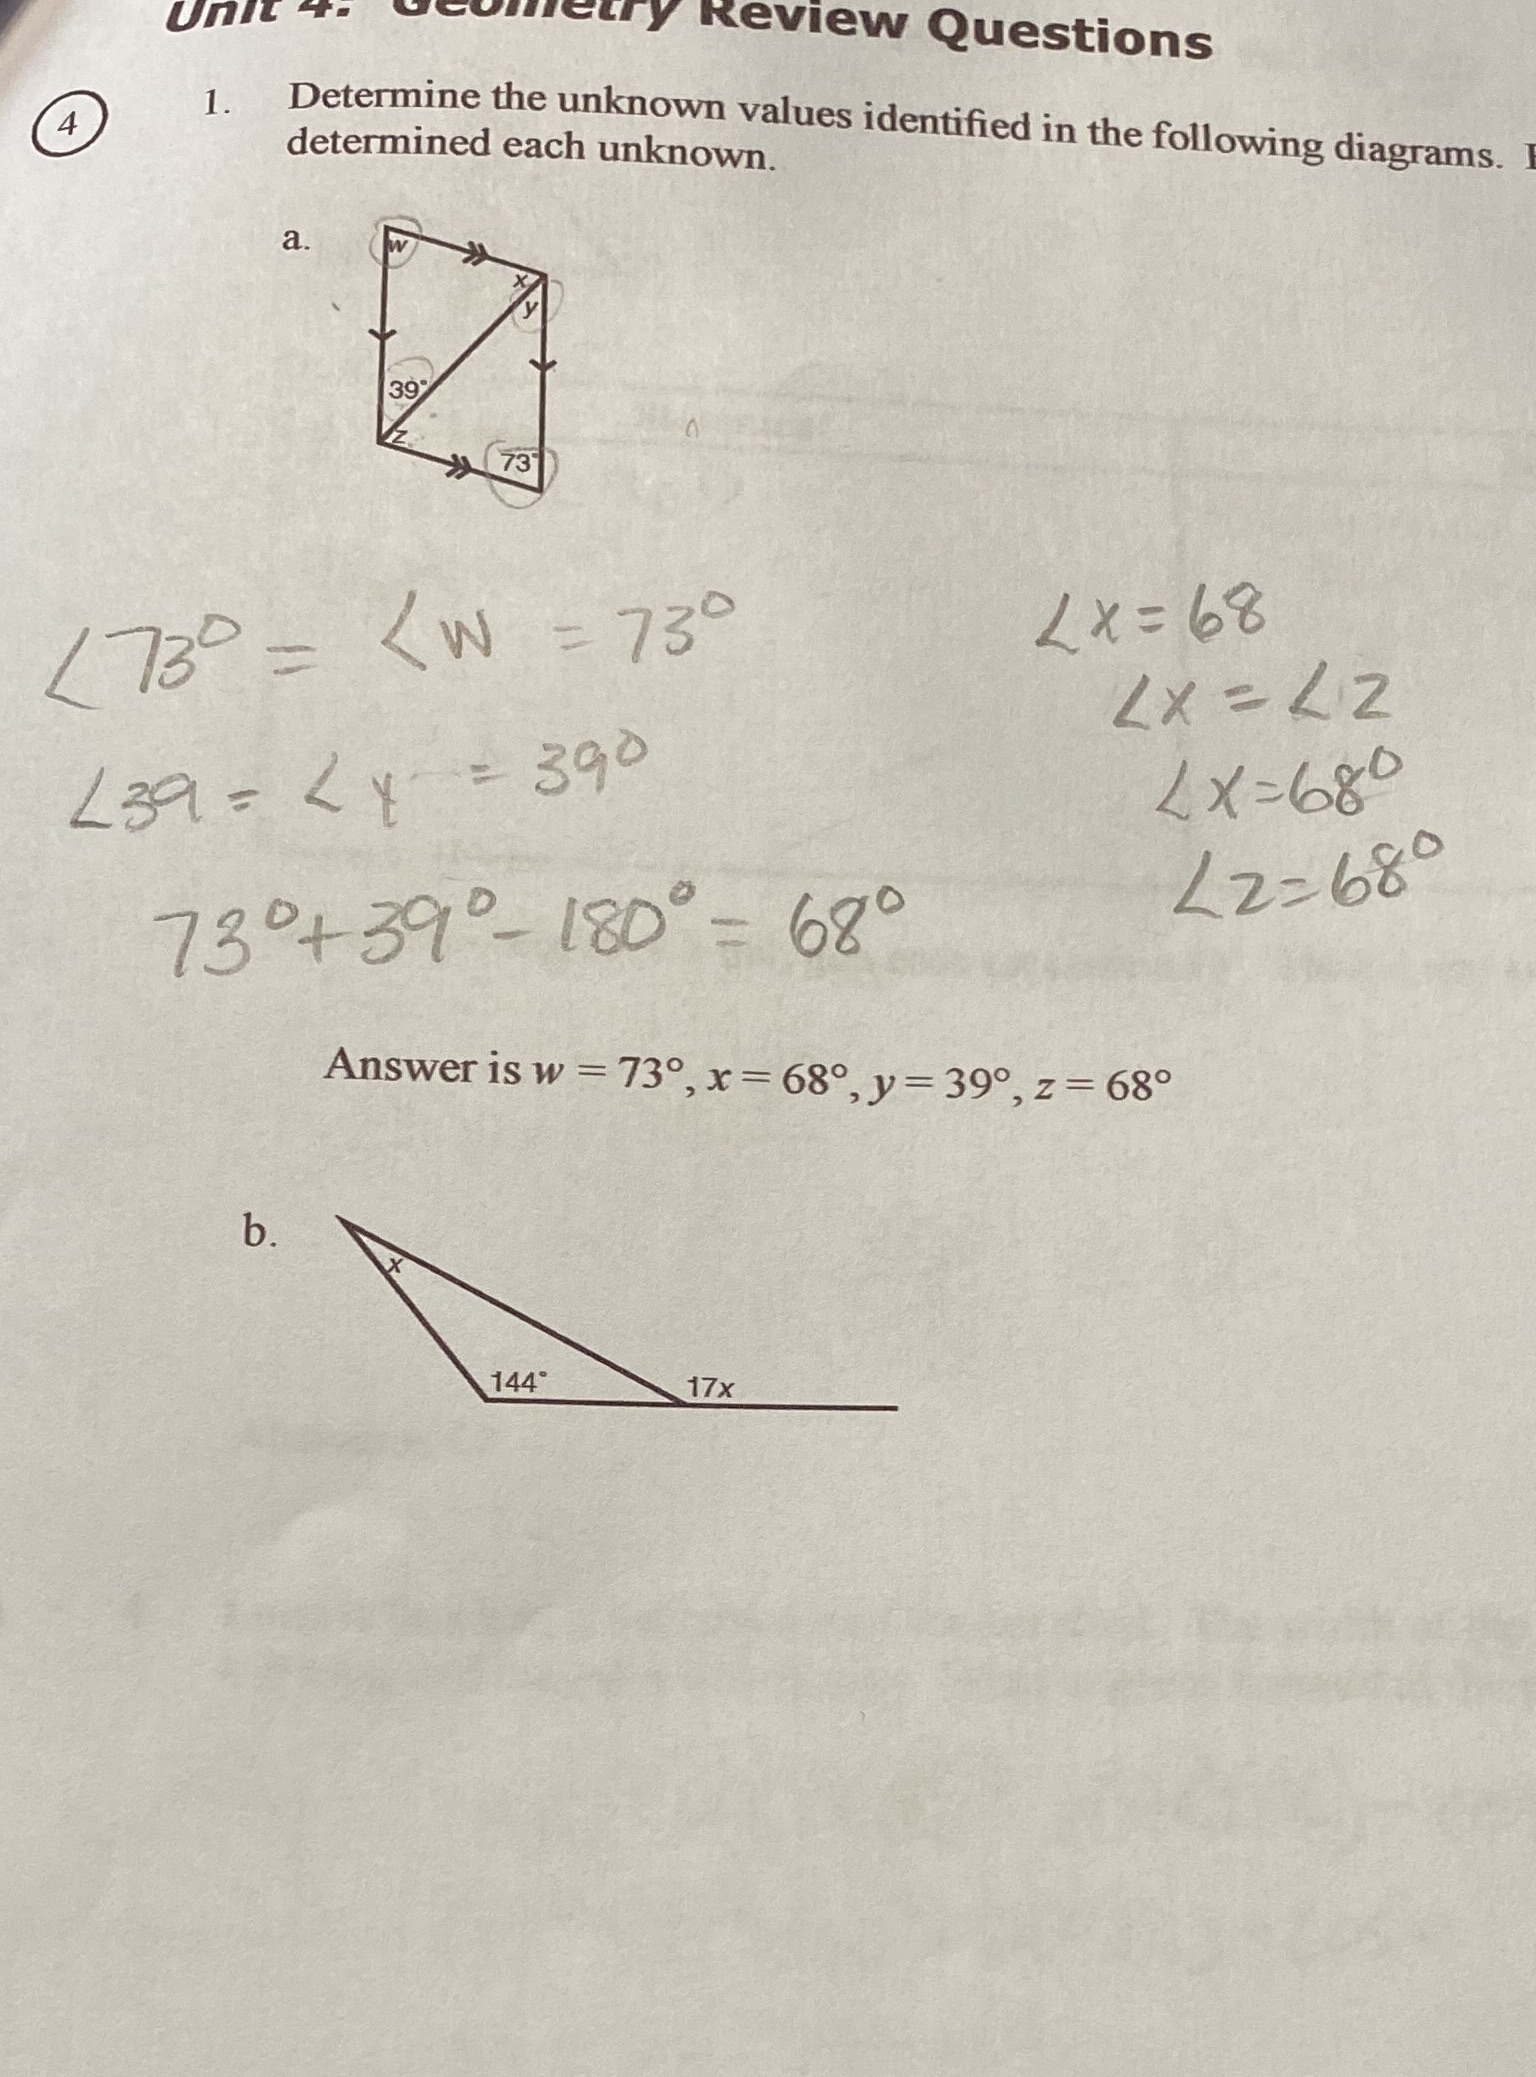 Unit 4: Geometry Review Questions
4
1. Determine the unknown values identified in the following diagrams.
determined each unknown.
a.
w
x
y
39°
z
73°
∠73° = ∠w = 73°
∠39 = ∠y = 39°
73°+39°-180°= 68°
∠x=68
∠x=∠z
∠x=68°
∠z=68°
Answer is w = 73°, x = 68°, y = 39°, z = 68°
b.
x
144°
17x